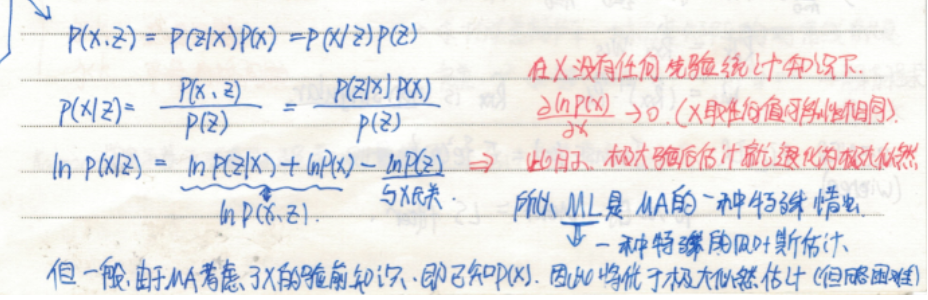 P(X,Z) = P(Z|X)P(X) = P(X|Z)P(Z)
P(X|Z) = P(X,Z) / P(Z) = P(Z|X)P(X) / P(Z)
在X没有任何先验统计知识下.
∂lnP(X)/∂X → 0. (X取任何值可能性相同).
ln P(X|Z) = ln P(Z|X) + lnP(X) - lnP(Z) ⇒ 此时、极大验后估计就退化为极大似然
ln P(X,Z). 与X无关.
所以 ML 是 MA的一种特殊情况.
⇓ 一种特殊的贝叶斯估计.
但一般,由于MA考虑了X的验前知识、即已知P(X). 因此将优于极大似然估计 (但略困难)